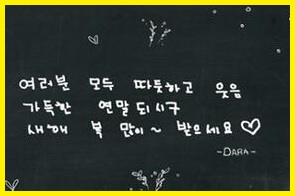 여러분 모두 따뜻하고 웃음
가득한 연말 되시구
새해 복 많이~ 받으세요♡
-DARA-